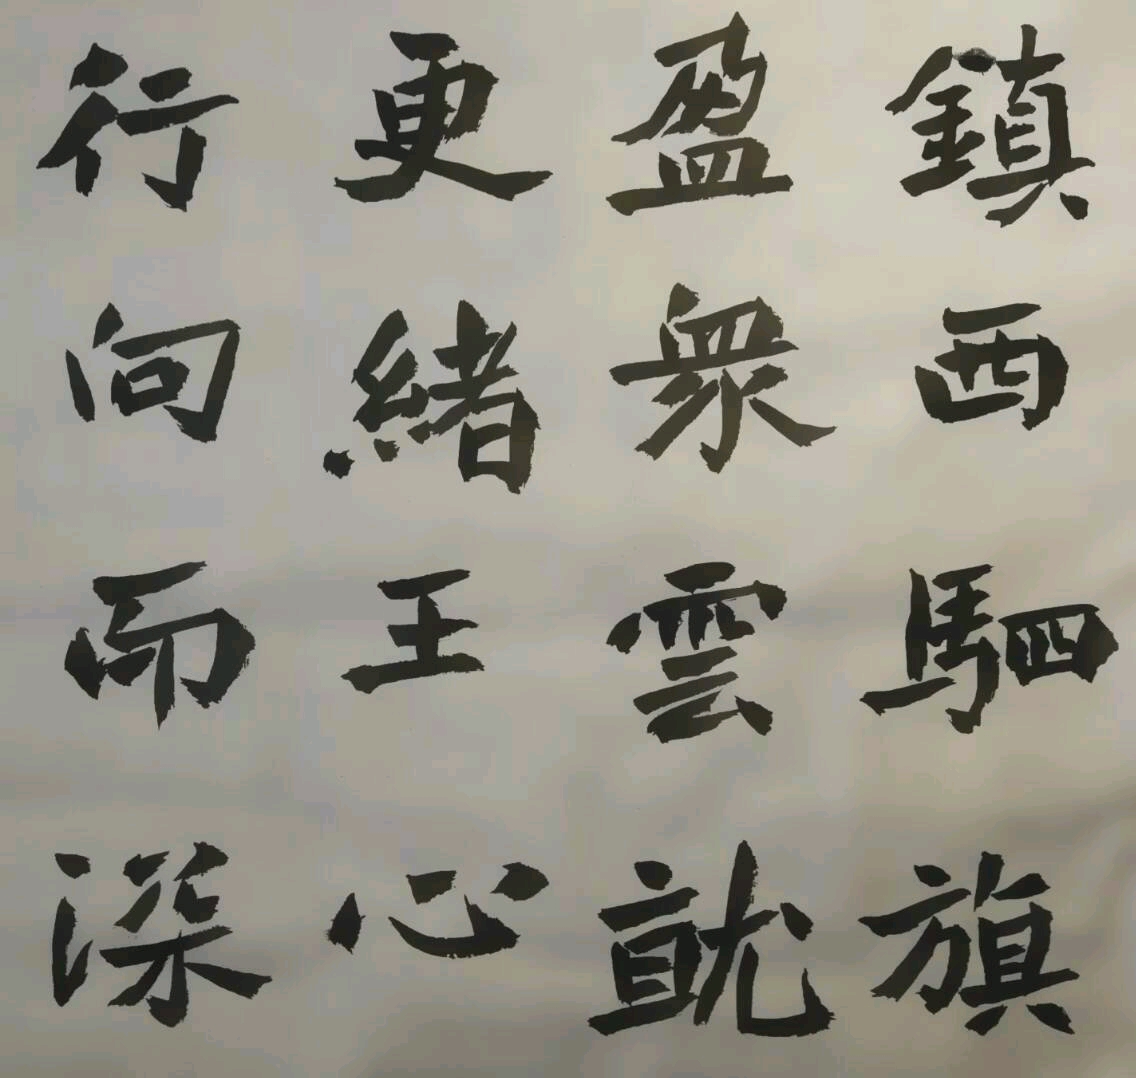 鎮西駟旗
盈衆雲就
更緒王心
行向而深